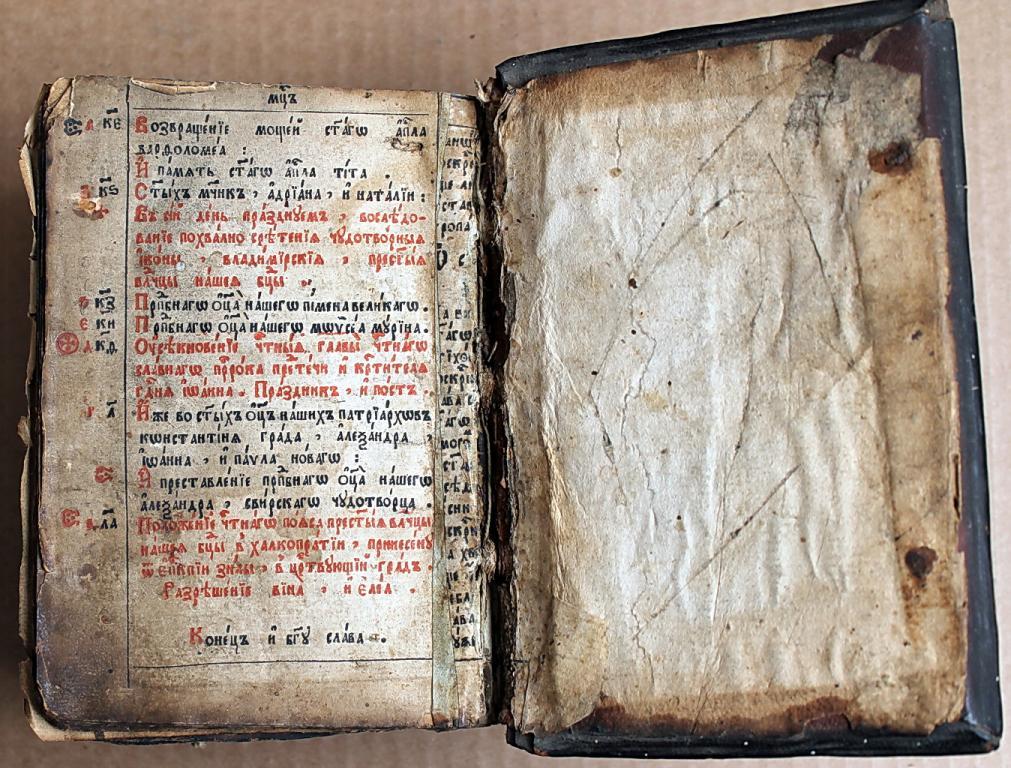 мцъ
к҃е Возвращенїе мощей ст҃агѡ ап҃ла
варѳоломеа :
И память ст҃агѡ ап҃ла тита .
к҃ѕ Ст҃ыхъ мч҃нкъ , адрїана , и наталїи :
Въ сїй день празднуемъ , вослѣдо-
ванїе похвално срѣтенїѧ чудотворныѧ
їконы , владимїрскїѧ , прест҃ыѧ
влч҃цы нашеѧ бц҃ы .
к҃з Прп҃бнагѡ ѻц҃а нашегѡ пімена великагѡ .
к҃и Прп҃бнагѡ ѻц҃а нашегѡ мѡѵсеа мурина .
к҃ѳ Оусѣкновенїе чт҃ныѧ главы чт҃нагѡ
славнагѡ прр҃ока претечи и крт҃ителѧ
гд҃нѧ їѡанна . Праздникъ , и постъ .
л҃ Иже во ст҃ыхъ ѻц҃ъ нашихъ патрїархѡвъ
кѡнстантїнѧ града , алеѯандра ,
їѡанна , и паѵла новагѡ :
И преставленїе прп҃бнагѡ ѻц҃а нашегѡ
алеѯандра , свирскагѡ чудотворца .
л҃а Положенїе чт҃нагѡ поѧса прест҃ыѧ влч҃цы
нашеѧ бц҃ы в халкопратїи , принесену
ѿ еп҃впїи зилы , в цр҃твующїй градъ .
Разрѣшенїе вїна , и елеа .
Конецъ и бг҃у слава .